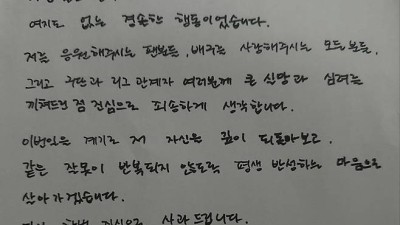 여지도 없는 경솔한 행동이었습니다.
저를 응원해주시는 팬분들, 배구를 사랑해주시는 모든 분들,
그리고 구단과 리그 관계자 여러분께 큰 실망과 심려를
끼쳐드린 점 진심으로 죄송하게 생각합니다.
이번일을 계기로 저 자신을 깊이 되돌아보고,
같은 잘못이 반복되지 않도록 평생 반성하는 마음으로
살아가겠습니다.
사과드립니다.